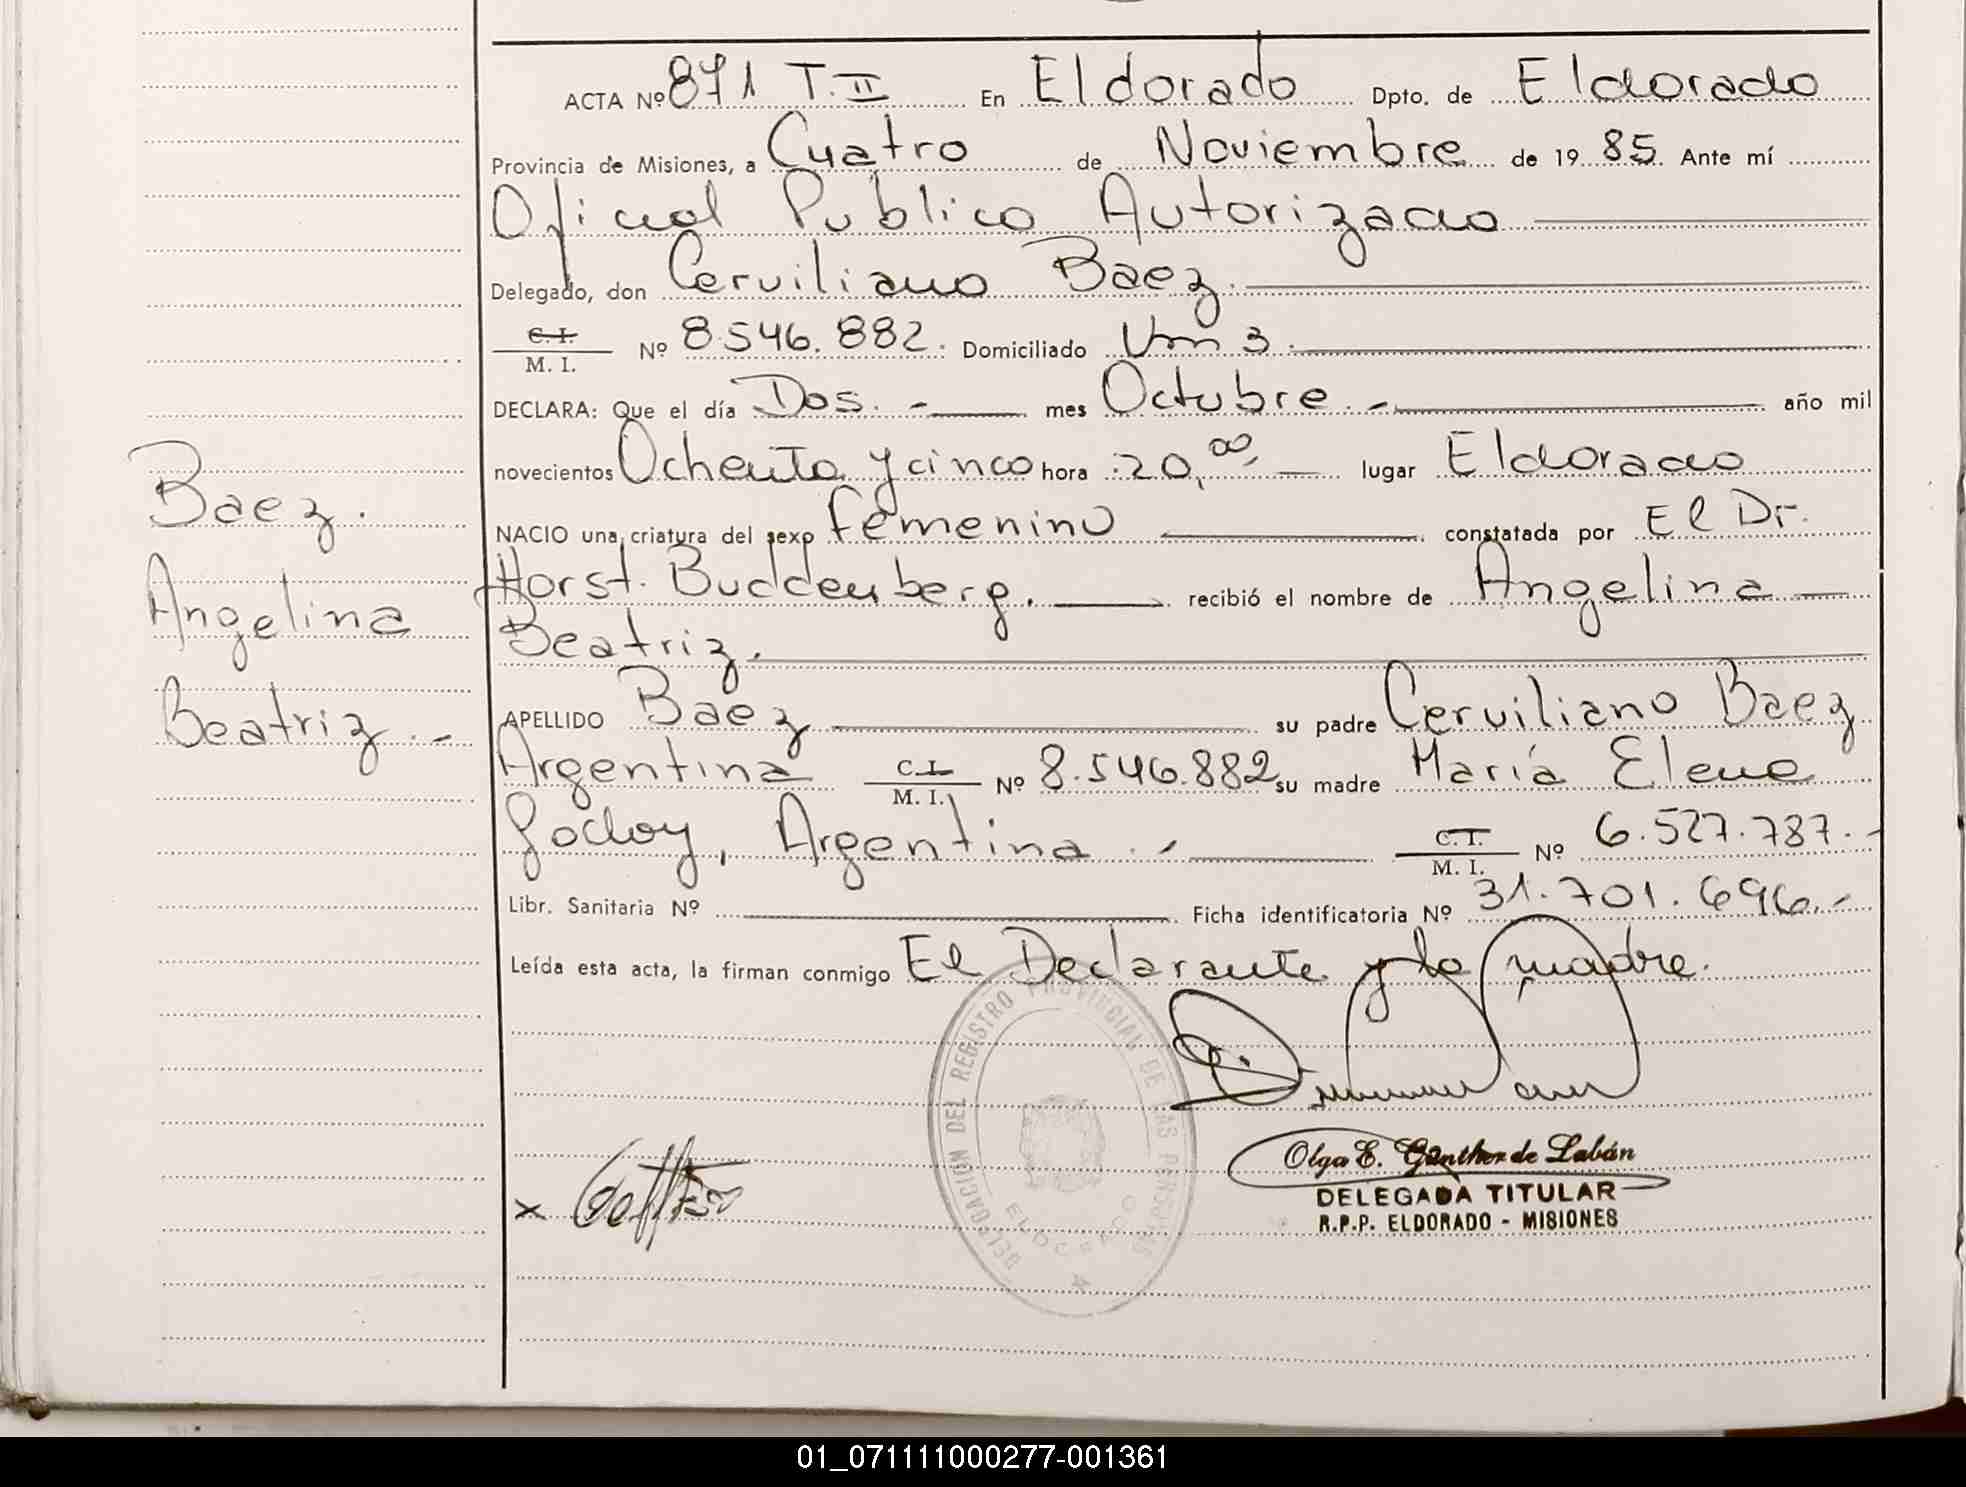 ACTA Nº 871 T. II En Eldorado Dpto. de Eldorado
Provincia de Misiones, a Cuatro de Noviembre de 19 85. Ante mí
Oficial Publico Autorizado
Delegado, don Cerviliano Baez.
C. I.
M. I. Nº 8.546.882. Domiciliado Km 3.
DECLARA: Que el día Dos. - mes Octubre. - año mil
novecientos Ochenta y cinco hora 20,00, lugar Eldorado
NACIO una criatura del sexo femenino constatada por El Dr.
Horst. Buddenberg. recibió el nombre de Angelina
Beatriz.
APELLIDO Baez su padre Cerviliano Baez
Argentina C. I. M. I. Nº 8.546.882 su madre María Elena
Godoy, Argentina. - C. I. M. I. Nº 6.527.787. -
Libr. Sanitaria Nº Ficha identificatoria Nº 31.701.696. -
Leída esta acta, la firman conmigo El Declarante y la madre.
Baez.
Angelina
Beatriz. -
DELEGACION DEL REGISTRO PROVINCIAL DE LAS PERSONAS
ELDORADO
x
Olga E. Günther de Labán
DELEGADA TITULAR
R.P.P. ELDORADO - MISIONES
01_071111000277-001361